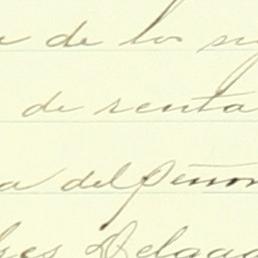 de los
de renta
del Peñon
Delgad